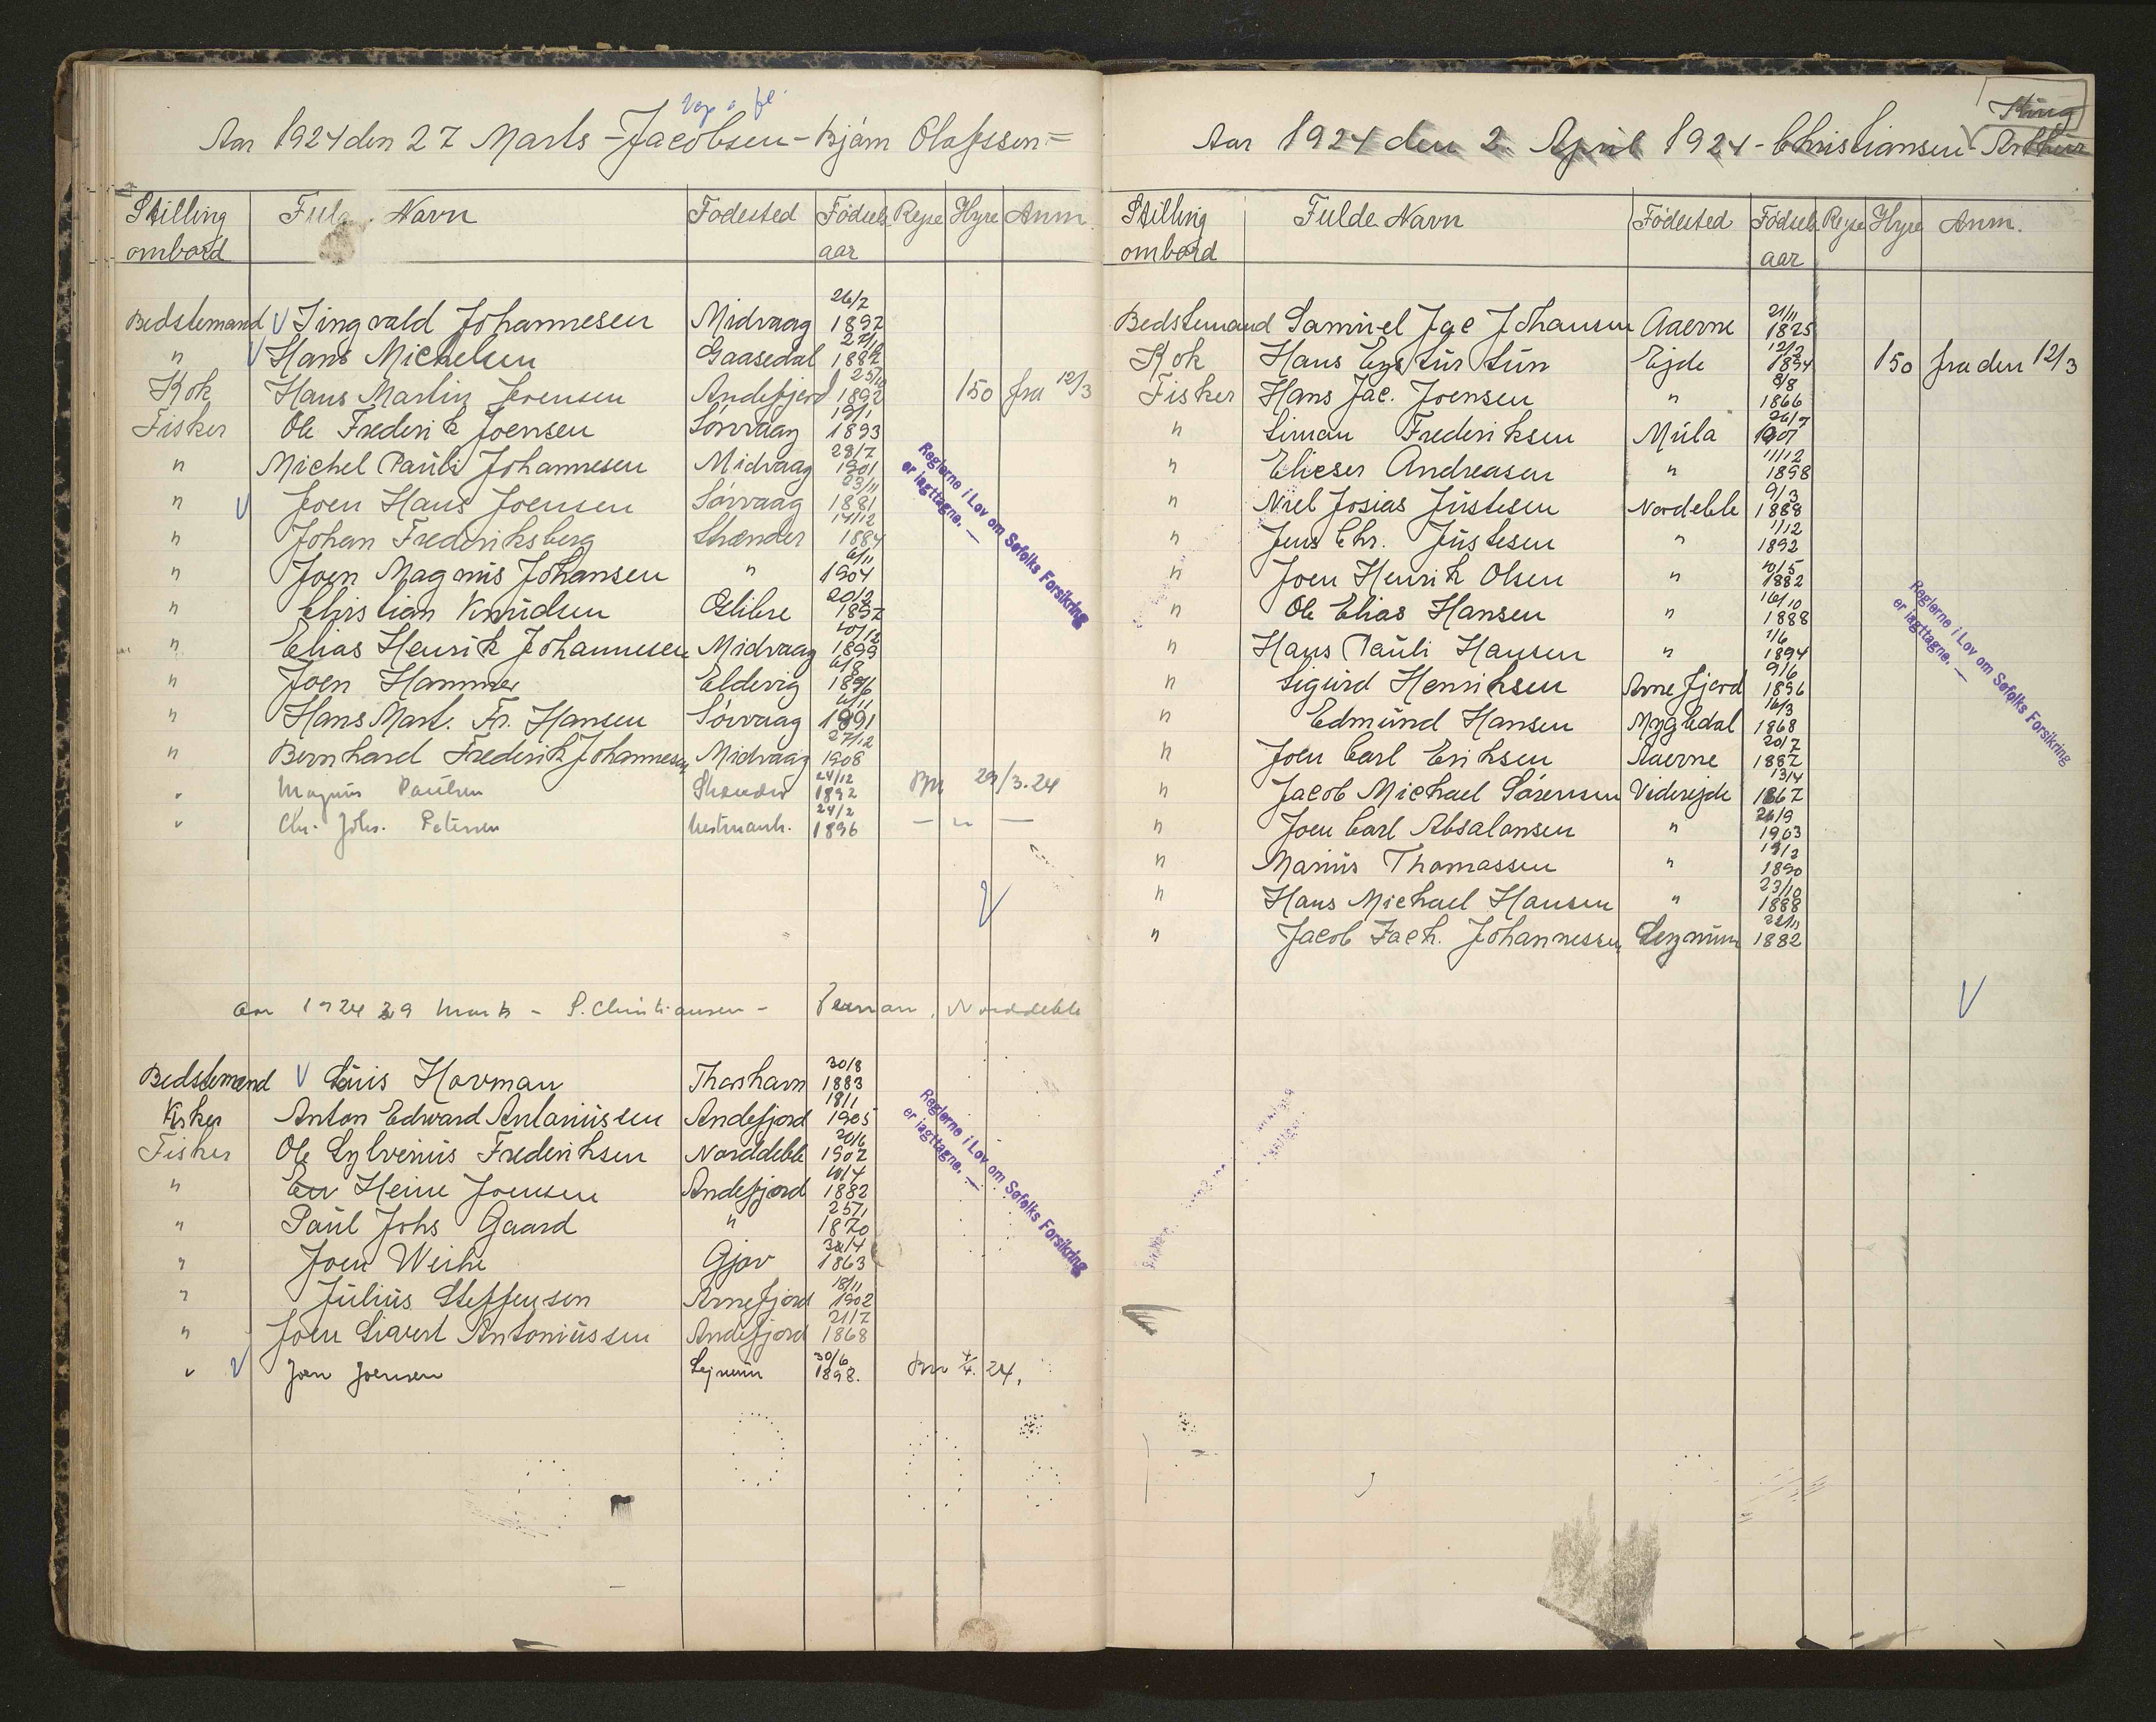 Aar 1924 den 27 Marts - Jacobsen - Bjørn Olafsson =
Stilling ombord Fulde Navn Fødested Fødsels aar Rejse Hyre Anm.
Bedstemand V Ingvald Johannesen Midvaag 26/2 1892
" V Hans Michelsen Gaasedal 1882
Kok Hans Martin Joensen Andefjord 25/10 1892 150 fra 12/3
Fisker Ole Frederik Joensen Sørvaag 19/1 1893
" Michel Pauli Johannesen Midvaag 28/7 1901
" V Joen Hans Joensen Sørvaag 23/11 1881
" Johan Frederiksberg Strænder 14/12 1884
" Joen Magnus Johansen " 6/11 1904
" Christian Knudsen Glibre 20/2 1897
" Elias Henrik Johannesen Midvaag 10/12 1899
" Joen Hammer Eldevig 6/8 1896
" Hans Mart. Fr. Hansen Sørvaag 1891
" Bernhard Frederik Johannesen Midvaag 27/12 1908
" Magnus Paulsen Strænder 24/12 1892 29/3.24
" Chr. Johs. Petersen Vestmanh. 24/2 1896 — " —
Reglerne i Lov om Søfolks Forsikring
er iagttagne. —
V
Aar 1924 29 Marts - P. Christiansen - Norddeble
Bedstemand V Louis Hovman Thorshavn 30/8 1883
Anton Edward Antoniussen Andefjord 18/1 1905
Fisker Ole Sylverius Frederiksen Norddeble 20/6 1902
" Heine Joensen Andefjord 10/4 1882
" Paul Johs Gaard " 25/1 1870
" Joen Weihe Gjov 1863
" Julius Steffensen Arnefjord 18/11 1902
" Joen Sivert Antoniussen Andefjord 21/7 1868
" V Joen Joensen Lejnum 30/6 1898. 24.
Reglerne i Lov om Søfolks Forsikring
er iagttagne. —
Aar 1924 den 2 April 1924 - Christiansen - King Arthur
Stilling ombord Fulde Navn Fødested Fødsels aar Rejse Hyre Anm.
Bedstemand Samuel Jac Johansen Aaerne 21/11 1825
Kok Hans Eysturtun Ejde 12/2 1894 150 fra den 12/3
Fisker Hans Jac. Joensen " 8/8 1866
" Siman Frederiksen Mula 26/7 1907
" Elieser Andreasen " 11/12 1898
" Niel Josias Justesen Nordeble 9/3 1888
" Jens Chr. Justesen " 1/12 1892
" Joen Henrik Olsen " 10/5 1882
" Ole Elias Hansen " 16/10 1888
" Hans Pauli Hansen " 1/6 1894
" Sigurd Henriksen Arnefjord 9/6 1896
" Edmund Hansen Mygledal 16/3 1868
" Joen Carl Eriksen Aaerne 20/7 1887
" Jacob Michael Sørensen Viderejde 13/4 1867
" Joen Carl Absalonsen " 26/9 1903
" Marius Thomassen " 19/2 1890
" Hans Michael Hansen " 23/10 1888
" Jacob Zach. Johannessen Leynum 22/11 1882
Reglerne i Lov om Søfolks Forsikring
er iagttagne. —
V